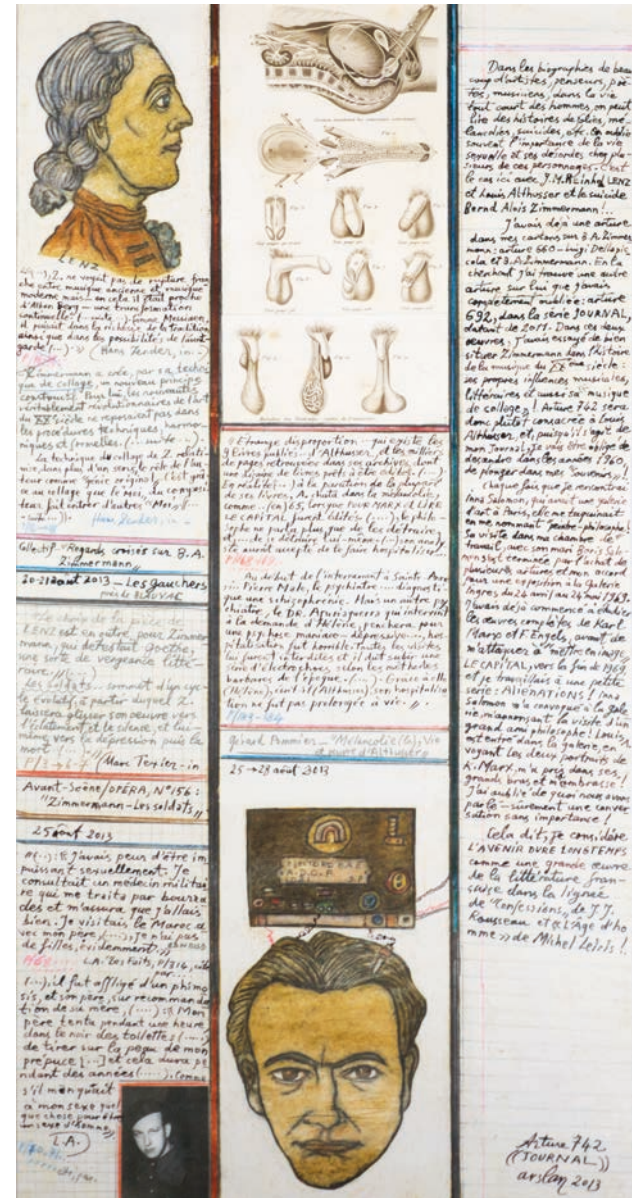 LENZ
«(...), Z. ne voyait pas de rupture fran
che entre musique ancienne et musique
moderne mais — en cela il était proche
d'Alban Berg — une transformation
continuelle! (...suite...) Comme Messiaen,
il puisait dans la richesse de la tradition
ainsi que dans les possibilités de l'avant
garde (...).» (Hans Zender, in...)
Zimmermann a créé, par sa techni
que de collage, un nouveau principe
constructif. Pour lui, les nouveautés
véritablement révolutionnaires de l'art
du XXe siècle ne reposaient pas dans
les procédures techniques, harmo-
niques et formelles. (...suite...).
La technique du collage de Z. relati-
vise, dans plus d'un sens, le rôle de l'au
teur comme "génie original". C'est grâ
ce au collage que le Moi, du composi
teur fait entrer d'autres "Moi,,
Hans Zender, in-
Collectif-"Regards croisés sur B.A.
Zimmermann,,
20-21 août 2013 — Les gauchers
près de BLAUVAC
Le choix de la pièce de
LENZ est en outre, pour Zimmer
mann, qui détestait Goethe,
une sorte de vengeance litté-
raire. (...)
Les soldats... sommet d'un cyc
le évolutif, à partir duquel Z.
laissera glisser son oeuvre vers
l'éclatement et le silence, et lui-
même vers la dépression puis la
mort
P/3-6-7 Marc Texier-in
Avant-Scène/OPÉRA, N°156:
"Zimmermann-Les soldats,,
25 août 2013
«(...): «J'avais peur d'être im
puissant sexuellement. Je
consultait un médecin militai
re qui me traita par bourra
des et m'assura que j'allais
bien. Je visitais le Maroc a
vec mon père (...). Je n'ai pas
de filles, évidemment.»
L.A. Les Faits, P/314, cité
par...
(...), il fut affligé d'un phimo
sis, et son père, sur recommanda
tion de sa mère, (...): «Mon
père tenta pendant une heure
dans le noir des toilettes (.....)
de tirer sur la peau de mon
prépuce [...] et cela dura pe
ndant des années (.....), comme
s'il manquait
à mon sexe quel
que chose pour être
un sexe d'homme,,
L.A.
Fig. 2.
Fig. 3.
« Etrange disproportion — qui existe les
livres publiés... d'Althusser, et les milliers
de pages retrouvées dans ses archives, dont
une dizaine de livres prêts à être édités (...).
En réalité (...) à la parution de la plupart
de ses livres, A. chuta dans la mélancolie,
comme ...(en) 65, lorsque POUR MARX et LIRE
LE CAPITAL furent édités (...): le philo-
sophe ne parla plus que de les détruire,
et... de se détruire lui-même (-); un analy
ste aurait accepté de le faire hospitaliser...
Au début de l'internement à Sainte-Anne
— Pierre Male, le psychiatre ... diagnosti-
qua une schizophrénie. Mais un autre psy
chiatre, le DR. Ajuriaguerra qui intervint
à la demande d'Hélène, penchera pour
une psychose maniaco-dépressive..., hos
pitalisation fut horrible. Toutes les visites
lui furent interdites et il dut subir une
série d'électrochocs, selon les méthodes
barbares de l'époque. (...) Grâce à elle
(Hélène), écrit-il (Althusser), son hospitalisa
tion ne fut pas prolongée à vie.»
Gérard Pommier — "Mélancolie (la), Vie
et mort d'Althusser,,
25→28 août 2013
Dans les biographies de beau
coup d'artistes, penseurs, poè-
tes, musiciens, dans la vie
tout court des hommes, on peut
lire des histoires de folies, mé-
lancolies, suicides, etc. On oublie
souvent l'importance de la vie
sexuelle et ses désordres chez plu-
sieurs de ces personnages. C'est
le cas ici avec J.M. Reinhold LENZ
et Louis Althusser et le suicidé
Bernd Alois Zimmermann!..
J'avais déjà une arture
dans mes cartons sur B.A. Zimmer
mann: arture 660 — Luigi Dallapic
cola et B.A. Zimmermann. En la
cherchant j'ai trouvé une autre
arture sur lui que j'avais
complètement oubliée: arture
692, dans la série JOURNAL,
datant de 2011. Dans ces deux
oeuvres, j'avais essayé de bien
situer Zimmermann dans l'histoire
de la musique du XXème siècle:
ses propres influences musicales,
littéraires et aussi sa "musique
de collage"! Arture 742 sera
donc plutôt consacrée à Louis
Althusser, et, puisqu'il s'agit de
mon Journal, je vais être obligé de
descendre dans les années 1960,
de plonger dans mes "souvenirs,,
Chaque fois que je rencontrai
Inna Salomon, qui avait une galerie
d'art à Paris, elle me taquinait
en me nommant "peintre-philosophe"!
Sa visite dans ma chambre de
travail, avec son mari Boris Salo-
mon s'est terminée par l'achat de
plusieurs artures et mon accord
pour une exposition à la Galerie
Ingres du 24 avril au 24 mai 1969.
J'avais déjà commencé à étudier
les oeuvres complètes de Karl
Marx et F. Engels, avant de
m'attaquer à "mettre en image,,
LE CAPITAL, vers la fin de 1969,
et je travaillais à une petite
série: ALIENATIONS! Inna
Salomon m'a convoqué à la gale
rie, m'annonçant la visite d'un
grand ami philosophe! Louis,
est entré dans la galerie, en
voyant les deux portraits de
K. Marx, m'a pris dans ses
grands bras et m'embrasse!
J'ai oublié de quoi nous avons
parlé — sûrement une conver
sation sans importance!
Cela dit, je considère
L'AVENIR DURE LONGTEMPS
comme une grande oeuvre
de la littérature fran-
çaise dans la lignée
de "Confessions,, de J.J.
Rousseau et «L'Age d'ho
mme» de Michel Leiris!
Arture 742
((JOURNAL))
arslan 2013